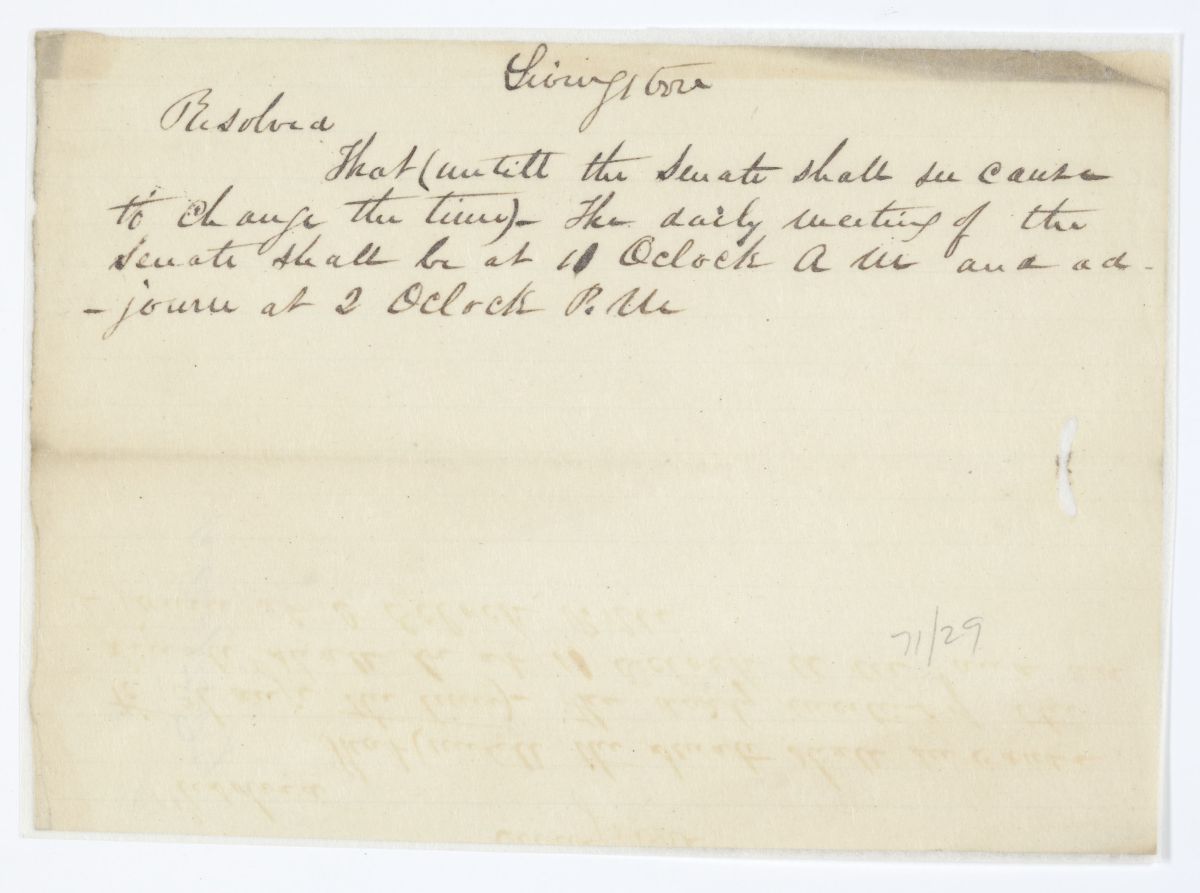 Livingston
Resolved
That (untill the Senate shall see cause
to change the time)- The daily meeting of the
Senate shall be at 11 Oclock A M and ad-
-journ at 2 Oclock P. M
71/29